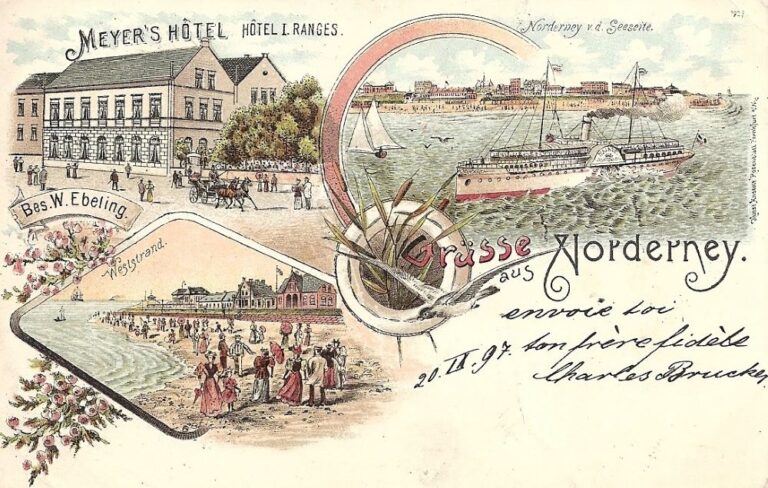 MEYER'S HÔTEL HÔTEL I. RANGES.
Norderney v. d. Seeseite.
Bes. W. Ebeling.
Weststrand.
Grüsse
aus Norderney.
envoie toi
20. IX. 97. ton frère fidèle
Charles Brucker